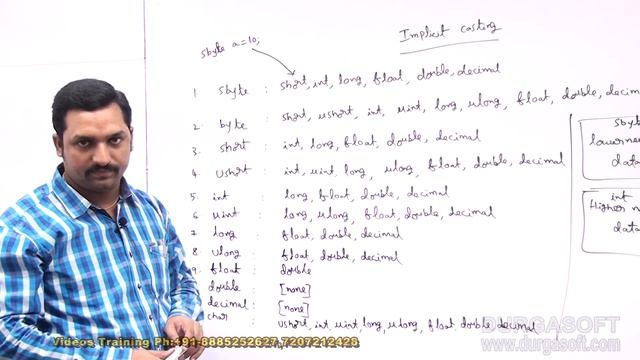 Implicit casting
sbyte a=10;
1. sbyte : short, int, long, float, double, decimal
2. byte : short, ushort, int, uint, long, ulong, float, double, decimal
3. short : int, long, float, double, decimal
4. ushort : int, uint, long, ulong, float, double, decimal
5. int : long, float, double, decimal
6 uint : long, ulong, float, double, decimal
7 long : float, double, decimal
8 ulong : float, double, decimal
9. float : double
double : [none]
decimal : [none]
char : ushort, int, uint, long, ulong, float, double, decimal
sbyte
data
int
data
DURGASOFT
www.durgasoft.com
Videos Training Ph:+91-8885252627,7207212428